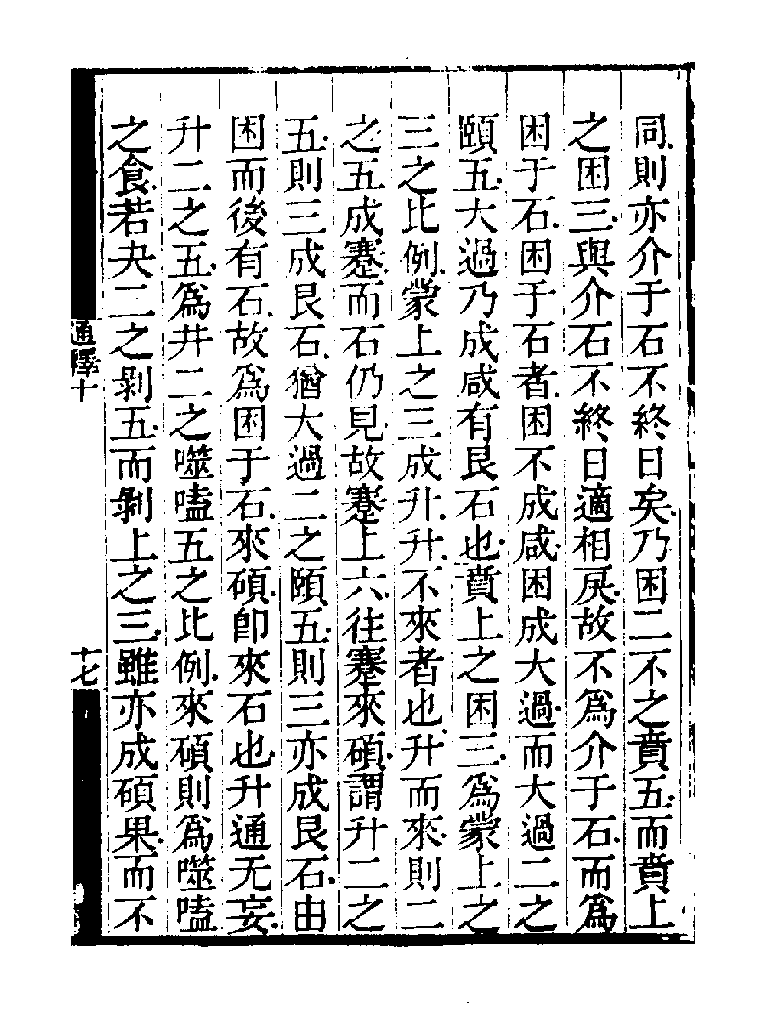 同則亦介于石不終日矣乃困二不之賁五而賁上
之困三與介石不終日適相戾故不為介于石而為
困于石困于石者困不成咸困成大過而大過二之
頤五大過乃成咸有艮石也賁上之困三為蒙上之
三之比例蒙上之三成升升不來者也升而來則二
之五成蹇而石仍見故蹇上六往蹇來碩謂升二之
五則三成艮石猶大過二之頤五則三亦成艮石由
困而後有石故為困于石來碩即來石也升通无妄
升二之五為井二之噬嗑五之比例來碩則為噬嗑
之食若夬二之剝五而剝上之三雖亦成碩果而不
通釋十
十七